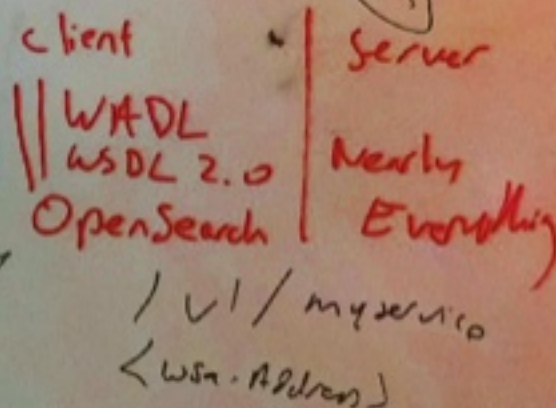 Client
Server
WADL
WSDL 2.0
OpenSearch
Nearly
Everything
/v1/myservice
<wsa:Address>